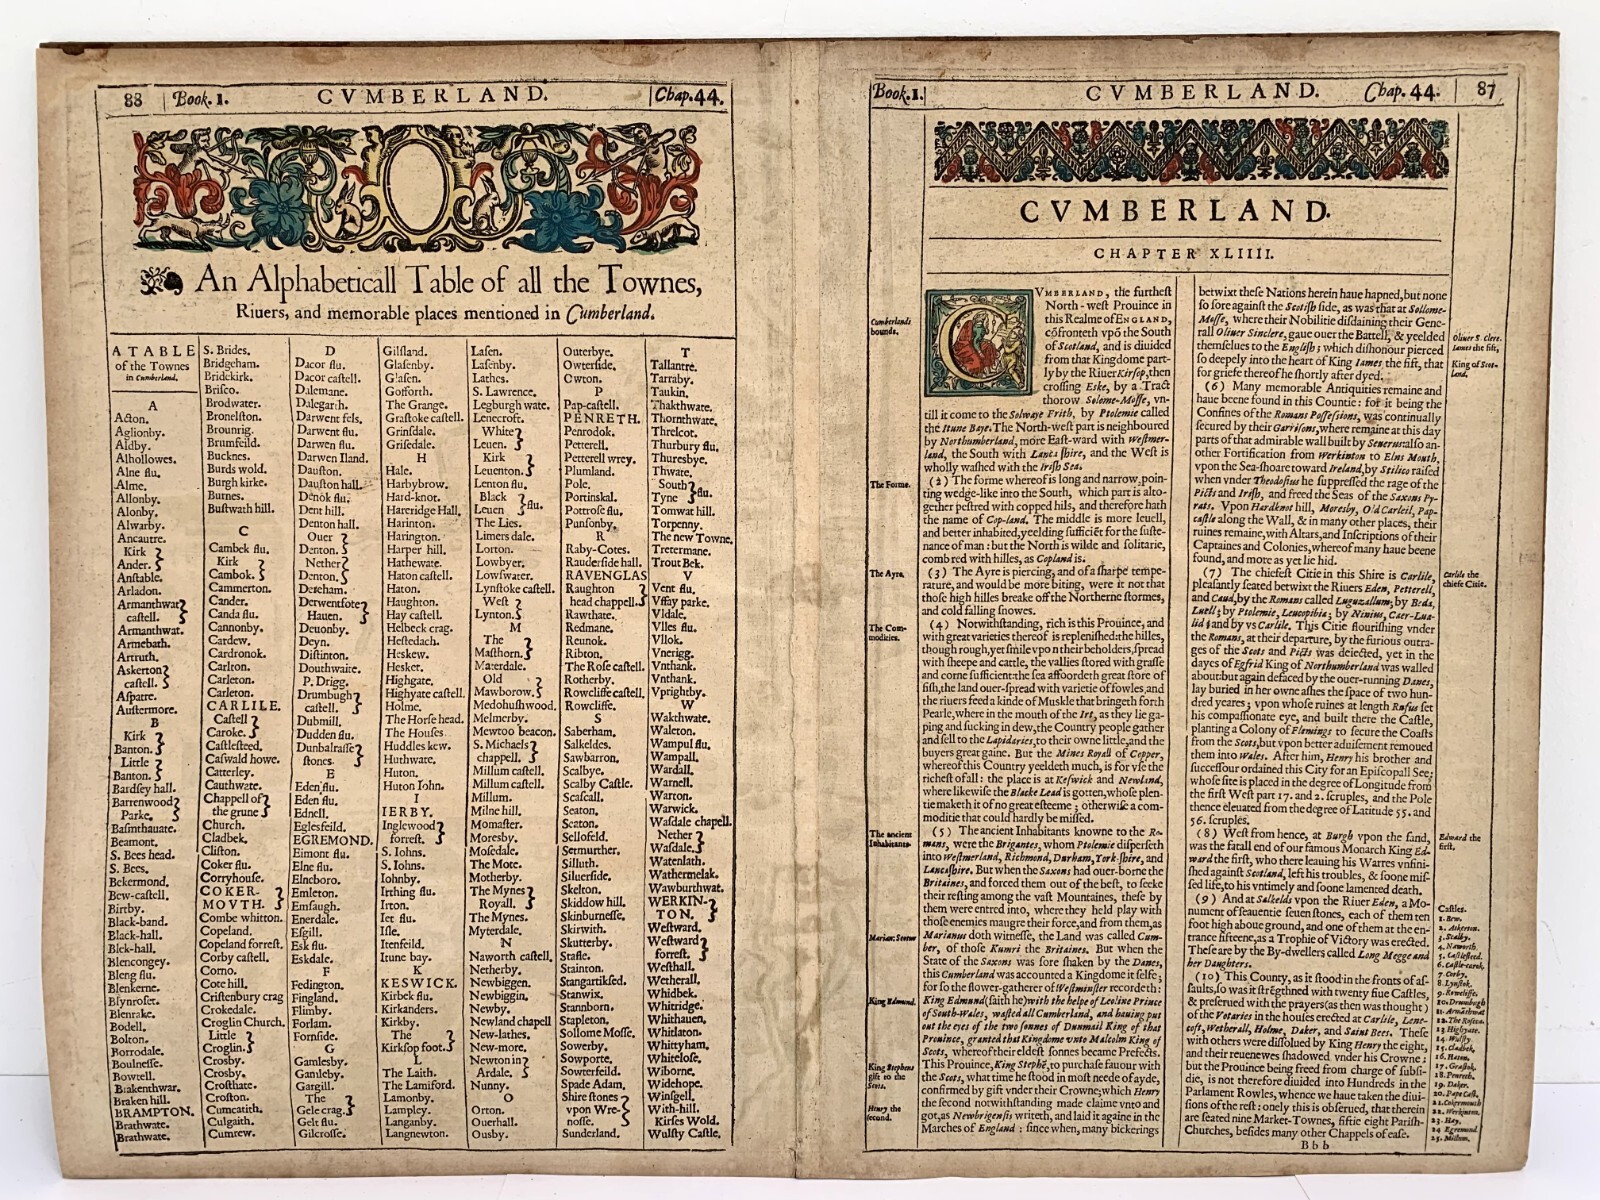 88 Book. 1. CVMBERLAND. Chap. 44.
An Alphabeticall Table of all the Townes,
Riuers, and memorable places mentioned in Cumberland.
A TABLE
of the Townes
in Cumberland.
A
Acton.
Aglionby.
Aldby.
Alhollowes.
Alne flu.
Alme.
Allonby.
Alonby.
Alwarby.
Ancautre.
Kirk
Ander.
Anſtable.
Arladon.
Armanthwat
caſtell.
Armanthwat.
Armebath.
Artruth.
Askerton
caſtell.
Aſpatre.
Auſtermore.
B
Kirk
Banton.
Little
Banton.
Bardſey hall.
Barrenwood
Parke.
Baſmthauate.
Beamont.
S. Bees head.
S. Bees.
Bekermond.
Bew-caſtell.
Birtby.
Black-band.
Black-hall.
Blek-hall.
Blencongey.
Bleng flu.
Blenkerne.
Blynroſet.
Blenrake.
Bodell.
Bolton.
Borrodale.
Boulneſſe.
Bowtell.
Brakenthwar.
Braken hill.
BRAMPTON.
Brathwate.
Brathwate.
S. Brides.
Bridgeham.
Bridekirk.
Briſco.
Brodwater.
Bronelſton.
Brounrig.
Brumfeild.
Bucknes.
Burds wold.
Burgh kirke.
Burnes.
Buſtwath hill.
C
Cambek flu.
Kirk
Cambok.
Cammerton.
Cander.
Canda flu.
Cannonby.
Cardew.
Cardronok.
Carlton.
Carleton.
Carleton.
CARLILE.
Caſtell
Caroke.
Caſtleſteed.
Caſwald howe.
Catterley.
Cauthwate.
Chappell of
the grune
Church.
Cladbek.
Clifton.
Coker flu.
Corryhouſe.
COKER-
MOVTH.
Combe whitton.
Copeland.
Copeland forreſt.
Corby caſtell.
Corno.
Cote hill.
Criſtenbury crag
Crokedale.
Croglin Church.
Little
Croglin.
Crosby.
Crosby.
Croſthate.
Crofton.
Cumcatith.
Culgaith.
Cumrew.
D
Dacor flu.
Dacor caſtell.
Dalemane.
Dalegarth.
Darwent fels.
Darwen flu.
Darwen Iland.
Dauſton.
Dauſton hall.
Denok flu.
Dent hill.
Denton hall.
Ouer
Denton.
Nether
Denton.
Dereham.
Derwentfote
Hauen.
Deuonby.
Deyn.
Diſtinton.
Douthwaite.
P. Drigg.
Drumbugh
caſtell.
Dubmill.
Dudden flu.
Dunbalraſſe
ſtones.
E
Eden flu.
Eden flu.
Ednell.
Egleſfeild.
EGREMOND.
Eimont flu.
Elne flu.
Elneboro.
Emleton.
Emſaugh.
Enerdale.
Eſgill.
Esk flu.
Eskdale.
F
Fedington.
Fingland.
Flimby.
Forlam.
Fornſide.
G
Gamlesby.
Gamleby.
Gargill.
The
Gele crag.
Gelt flu.
Gilcroſſe.
Gilſland.
Glaſenby.
Glaſen.
Goſforth.
The Grange.
Graſtoke caſtell.
Grinſdale.
Griſedale.
H
Hale.
Harbybrow.
Hard-knot.
Hareridge Hall.
Harinton.
Harington.
Harper hill.
Hathewate.
Haton caſtell.
Haton.
Haughton.
Hay caſtell.
Helbeck crag.
Heſtedach.
Heskew.
Hesket.
Highgate.
Highyate caſtell.
Holme.
The Horſe head.
The Houſes
Huddles kew.
Huthwate.
Huton.
Huton John.
I
IERBY.
Inglewood
forreſt.
S. Iohns.
S. Iohns.
Iohnby.
Irthing flu.
Irton.
Iet flu.
Iſle.
Itenfeild.
Itune bay.
K
KESWICK.
Kirbek flu.
Kirkanders.
Kirkby.
The
Kirkſop foot.
L
The Laith.
The Lamiford.
Lamonby.
Lampley.
Langanby.
Langnewton.
Laſen.
Laſenby.
Lathes.
S. Lawrence.
Legburgh wate.
Lenecroft.
White
Leuen.
Kirk
Leuenton.
Lenton flu.
Black
Leuen flu.
The Lies.
Limers dale.
Lorton.
Lowbyer.
Lowſwater.
Lynſtoke caſtell.
Weſt
Lynton.
M
The
Maſthorn.
Materdale.
Old
Mawborow.
Medohuſhwood.
Melmerby.
Mewtoo beacon.
S. Michaels
chappell.
Millum caſtell.
Millum caſtell.
Millum.
Milne hill.
Monaſter.
Moresby.
Moſedale.
The Mote.
Motherby.
The Mynes
Royall.
The Mynes.
Myterdale.
N
Naworth caſtell.
Netherby.
Newbiggen.
Newbiggin.
Newby.
Newland chapell
New-lathes.
New-more.
Newton in
Ardale.
Nunny.
O
Orton.
Ouerhall.
Ousby.
Outerbye.
Owterſide.
Owton.
P
Pap-caſtell.
PENRETH.
Penrodok.
Petterell.
Petterell wrey.
Plumland.
Pole.
Portinskal.
Pottroſe flu.
Punſonby.
R
Raby-Cotes.
Rauderſide hall.
RAVENGLAS
Raughton
head chappell.
Rawthate.
Redmane.
Reunok.
Ribton.
The Roſe caſtell.
Rotherby.
Rowcliffe caſtell.
Rowcliffe.
S
Saberham.
Salkeldes.
Sawbarron.
Scalbye.
Scalby Caſtle.
Seaſcall.
Seaton.
Seaton.
Sellofeld.
Setmurther.
Silluth.
Siluerſide.
Skelton.
Skiddow hill.
Skinburneſſe.
Skirwith.
Skutterby.
Stafle.
Stainton.
Stangarikſed.
Stanwix.
Stannborn.
Stapleton.
Sollome Moſſe.
Sowerby.
Sowporte.
Sowterfeild.
Spade Adam,
Shire ſtones
vpon Wre-
noſſe.
Sunderland.
T
Tallantre.
Tarraby.
Taukin.
Thakthwate.
Thornthwate.
Threlcot.
Thurbury flu.
Thuresbye.
Thwate.
South
Tyne flu.
Tomwat hill.
Torpenny.
The new Towne.
Tretermane.
Trout Bek.
V
Vent flu.
Vffay parke.
Vldale.
Vlles flu.
Vllok.
Vnerigg.
Vnthank.
Vnthank.
Vprightby.
W
Wakthwate.
Waleton.
Wampul flu.
Wampall.
Wardall.
Warnell.
Warton.
Warwick.
Waſdale chapell.
Nether
Waſdale.
Watenlath.
Wathermelak.
Wawburthwat.
WERKIN-
TON.
Weſtward.
Weſtward
forreſt.
Weſthall.
Wetherall.
Whidbek.
Whitridge.
Whithauen.
Whitlaton.
Whittyham.
Whiteloſe.
Wiborne.
Widehope.
Winſgell.
With-hill.
Kirſes Wold.
Wulſty Caſtle.
Book. 1. CVMBERLAND. Chap. 44. 87
CVMBERLAND.
CHAPTER XLIIII.
CVMBERLAND, the furtheſt
North-weſt Prouince in
this Realme of ENGLAND,
cōfronteth vpō the South
of Scotland, and is diuided
from that Kingdome part-
ly by the Riuer Kirſop, then
crossing Eske, by a Tract
thorow Soleme-Moſſe, vn-
till it come to the Solwaye Frith, by Ptolemie called
the Itune Baye. The North-weſt part is neighboured
by Northumberland, more Eaſt-ward with Weſtmer-
land, the South with Lancaſhire, and the Weſt is
wholly waſhed with the Iriſh Sea.
(2) The forme whereof is long and narrow, poin-
ting wedge-like into the South, which part is alto-
gether peſtred with copped hils, and therefore hath
the name of Cop-land. The middle is more leuell,
and better inhabited, yeelding ſufficiēt for the ſuſte-
nance of man: but the North is wilde and ſolitarie,
combred with hilles, as Copland is.
(3) The Ayre is piercing, and of a ſharpe tempe-
rature, and would be more biting, were it not that
thoſe high hilles breake off the Northerne ſtormes,
and cold falling ſnowes.
(4) Notwithſtanding, rich is this Prouince, and
with great varieties thereof is repleniſhed: the hilles,
though rough, yet ſmile vpon their beholders, ſpread
with ſheepe and cattle, the vallies ſtored with graſſe
and corne ſufficient: the ſea affoordeth great ſtore of
fiſh, the land ouer-ſpread with varietie of fowles, and
the riuers feed a kinde of Muskle that bringeth forth
Pearle, where in the mouth of the Irt, as they lie ga-
ping and ſucking in dew, the Country people gather
and ſell to the Lapidaries, to their owne little, and the
buyers great gaine. But the Mines Royall of Copper,
whereof this Country yeeldeth much, is for vſe the
richeſt of all: the place is at Keſwick and Newland,
where likewiſe the Blacke Lead is gotten, whoſe plen-
tie maketh it of no great eſteeme; otherwiſe a com-
moditie that could hardly be miſſed.
(5) The ancient Inhabitants knowne to the Ro-
mans, were the Brigantes, whom Ptolemie diſperſeth
into Weſtmerland, Richmond, Durham, York-ſhire, and
Lancaſhire. But when the Saxons had ouer-borne the
Britaines, and forced them out of the beſt, to ſeeke
their reſting among the vaſt Mountaines, theſe by
them were entred into, where they held play with
thoſe enemies maugre their force, and from them, as
Marianus doth witneſſe, the Land was called Cum-
ber, of thoſe Kumri the Britaines. But when the
State of the Saxons was ſore ſhaken by the Danes,
this Cumberland was accounted a Kingdome it ſelfe;
for ſo the flower-gatherer of Weſtminſter recordeth:
King Edmund (ſaith he) with the helpe of Leoline Prince
of South-Wales, waſted all Cumberland, and hauing put
out the eyes of the two ſonnes of Dunmail King of that
Prouince, granted that Kingdome vnto Malcolm King of
Scots, whereof their eldeſt ſonnes became Prefects.
This Prouince, King Stephē, to purchaſe fauour with
the Scots, what time he ſtood in moſt neede of ayde,
confirmed by gift vnder their Crowne; which Henry
the ſecond notwithſtanding made claime vnto and
got, as Newbrigenſis writeth, and laid it againe in the
Marches of England: ſince when, many bickerings
Cumberlands
bounds.
The Forme.
The Ayre.
The Com-
modities.
The ancient
Inhabitants.
Marian: Scotus
King Edmund.
King Stephens
gift to the
Scots.
Henry the
ſecond.
betwixt theſe Nations herein haue hapned, but none
ſo ſore againſt the Scotiſh ſide, as was that at Sollome-
Moſſe, where their Nobilitie diſdaining their Gene-
rall Oliuer Sinclere, gaue ouer the Battell, & yeelded
themſelues to the Engliſh; which diſhonour pierced
ſo deeply into the heart of King Iames the fift, that
for griefe thereof he ſhortly after dyed.
(6) Many memorable Antiquities remaine and
haue beene found in this Countie: for it being the
Confines of the Romans Poſſeſſions, was continually
ſecured by their Garriſons, where remaine at this day
parts of that admirable wall built by Seuerus: alſo an-
other Fortification from Werkinton to Elns Mouth,
vpon the Sea-ſhoare toward Ireland, by Stilico raiſed
when vnder Theodoſius he ſuppreſſed the rage of the
Picts and Iriſh, and freed the Seas of the Saxons Py-
rats. Vpon Hardknot hill, Moresby, Old Carleil, Pap-
caſtle along the Wall, & in many other places, their
ruines remaine, with Altars, and Inſcriptions of their
Captaines and Colonies, whereof many haue beene
found, and more as yet lie hid.
(7) The chiefeſt Citie in this Shire is Carlile,
pleaſantly ſeated betwixt the Riuers Eden, Petterell,
and Caud, by the Romans called Luguzallum; by Beda,
Luell; by Ptolemie, Leucopibia; by Ninius, Caer-Lua-
lid; and by vs Carlile. This Citie flouriſhing vnder
the Romans, at their departure, by the furious outra-
ges of the Scots and Picts was deiected, yet in the
dayes of Egfrid King of Northumberland was walled
about: but again defaced by the ouer-running Danes,
lay buried in her owne aſhes the ſpace of two hun-
dred yeares; vpon whoſe ruines at length Rufus ſet
his compaſſionate eye, and built there the Caſtle,
planting a Colony of Flemings to ſecure the Coaſts
from the Scots, but vpon better aduiſement remoued
them into Wales. After him, Henry his brother and
ſucceſſour ordained this City for an Epiſcopall See;
whoſe ſite is placed in the degree of Longitude from
the firſt Weſt part 17. and 2. ſcruples, and the Pole
thence eleuated from the degree of Latitude 55. and
56. ſcruples.
(8) Weſt from hence, at Burgh vpon the ſand,
was the fatall end of our famous Monarch King Ed-
ward the firſt, who there leauing his Warres vnfini-
ſhed againſt Scotland, left his troubles, & ſoone miſ-
ſed life, to his vntimely and ſoone lamented death.
(9) And at Salkelds vpon the Riuer Eden, a Mo-
nument of ſeauentie ſeuen ſtones, each of them ten
foot high aboue ground, and one of them at the en-
trance fifteene, as a Trophie of Victory was erected.
Theſe are by the By-dwellers called Long Megge and
her Daughters.
(10) This County, as it ſtood in the fronts of aſ-
ſaults, ſo was it ſtrēgthned with twenty fiue Caſtles,
& preſerued with the prayers (as then was thought)
of the Votaries in the houſes erected at Carliſle, Lene-
coſt, Wetherall, Holme, Daker, and Saint Bees. Theſe
with others were diſſolued by King Henry the eight,
and their reuenewes ſhadowed vnder his Crowne:
but the Prouince being freed from charge of ſubſi-
die, is not therefore diuided into Hundreds in the
Parlament Rowles, whence we haue taken the diui-
ſions of the reſt: onely this is obſerued, that therein
are ſeated nine Market-Townes, fiftie eight Pariſh-
Churches, beſides many other Chappels of eaſe.
Bbb
Oliuer S. Clere.
Iames the fift,
King of Scot-
land.
Carlile the
chiefe Citie.
Edward the
firſt.
Caſtles.
1. Bew.
2. Askerton.
3. Scalby.
4. Naworth.
5. Caſtleſteed.
6. Caſtle-carok.
7. Corby.
8. Lynſtok.
9. Rowcliffe.
10. Drumbugh
11. Armathwat
12. The Roſe ca.
13. Highyate.
14. Wulſty.
15. Cladbek.
16. Haton.
17. Graſtok.
18. Penreth.
19. Daker.
20. Pape Caſt.
21. Cokermouth
22. Werkinton.
23. Hay.
24. Egremond.
25. Millum.